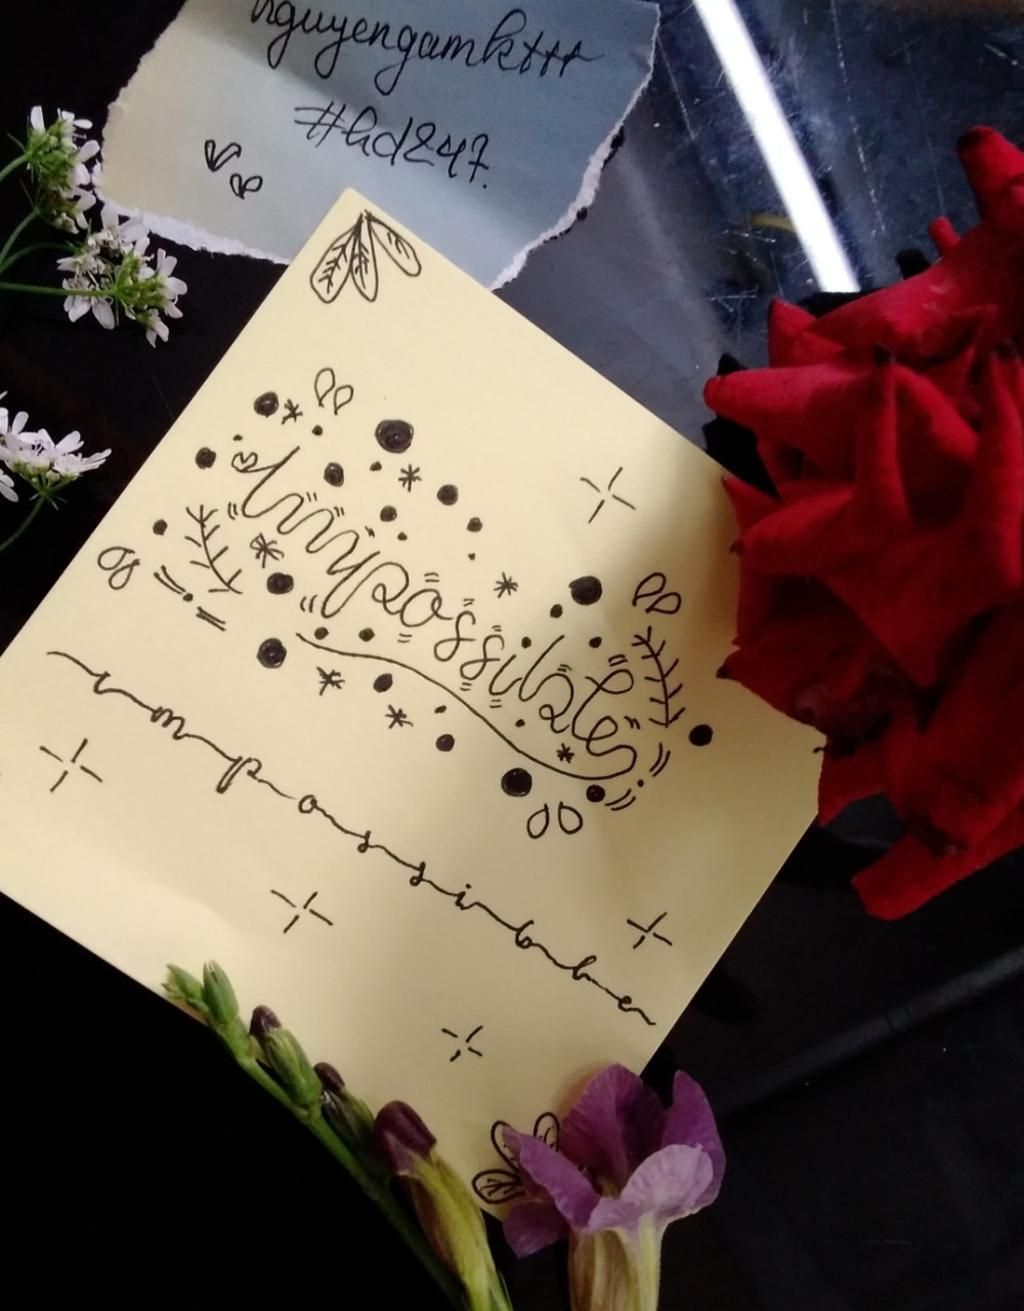 nguyengamkttt
#hd247.
impossible
impossible